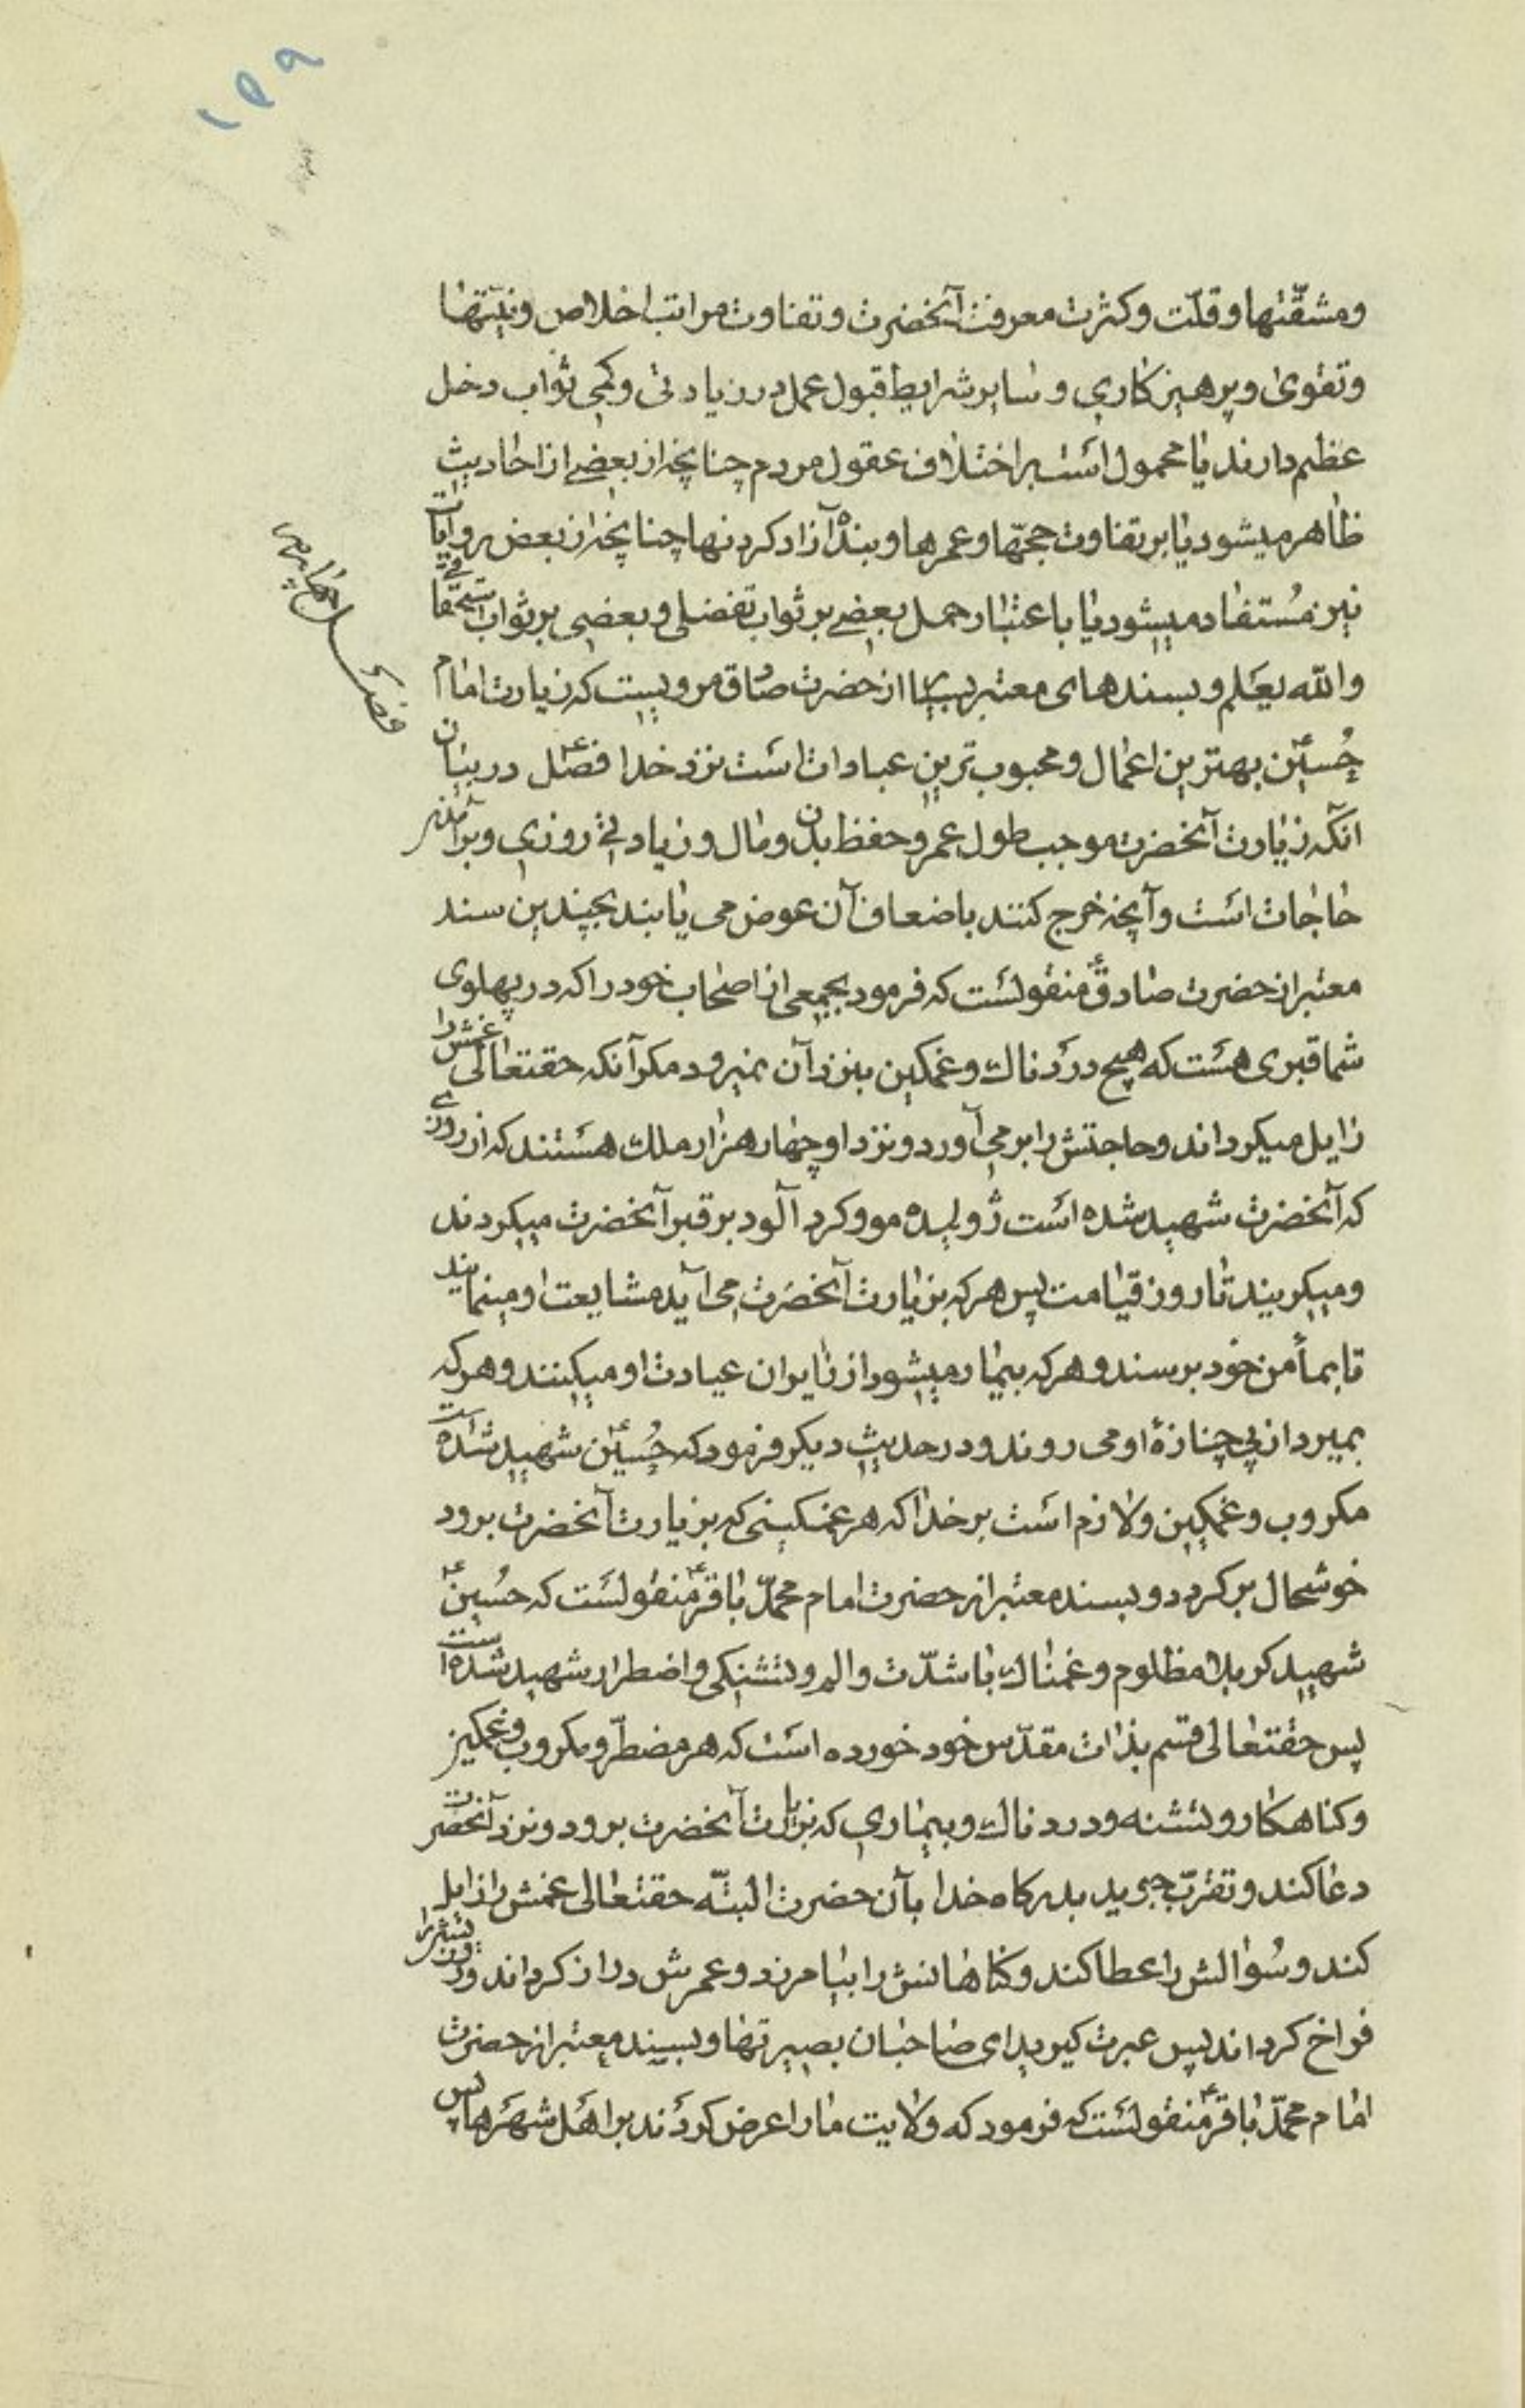 ۱۵۹
ومشقّتها وقلّت وکثرت معرفت آنحضرت وتفاوت مراتب اخلاص ونیّتها
وتقوی وپرهیزکاری وسایر شرایط قبول عمل در زیادتی وکمی ثواب دخل
عظیم دارند یا محمول است بر اختلاف عقول مردم چنانچه از بعضی از احادیث
ظاهر میشود یا بر تفاوت حجّها وعمرها وبنده آزاد کردنها چنانچه از بعض روایات
نیز مستفاد میشود یا باعتبار حمل بعضی بر ثواب تفضلی وبعضی بر ثواب استحقاقی
والله یعلم وبسندهای معتبر بسیار از حضرت صادق مرویست که زیارت امام
حُسین ع بهترین اعمال ومحبوب ترین عبادات است نزد خدا فصل در بیان
آنکه زیارت آنحضرت موجب طول عمر وحفظ بدن ومال وزیادتی روزی وبرآمدن
حاجات است وآنچه خرج کنند باضعاف آن عوض می یابند بچندین سند
معتبر از حضرت صادق ع منقولست که فرمود بجمعی از اصحاب خود را که در پهلوی
شما قبری هست که هیچ دردناک وغمکین بنزد آن نمیرود مکر آنکه حقتعالی غمش را
زایل میکرداند وحاجتش را برمی آورد ونزد او چهار هزار ملک هستند که از روزی
که آنحضرت شهید شده است ژولیده مو وکرد آلود بر قبر آنحضرت میکردند
ومیکریند تا روز قیامت پس هر که بزیارت آنحضرت می آید مشایعت او مینمایند
تا بمأمن خود برسند وهر که بیمار میشود از زایران عیادت او میکنند وهر که
بمیرد از پی جنازهٔ او می روند ودر حدیث دیکر فرمود که حُسین ع شهید شده است
مکروب وغمکین ولازم است بر خدا که هر غمکینی که بزیارت آنحضرت برود
خوشحال برکردد وبسند معتبر از حضرت امام محمّد باقر ع منقولست که حُسین ع
شهید کربلا مظلوم وغمناک با شدّت والم وتشنکی واضطرار شهید شده است
پس حقتعالی قسم بذات مقدّس خود خورده است که هر مضطرّ ومکروب وغمکین
وکناهکار وتشنه ودردناک وبیماری که بزیارت آنحضرت برود ونزد آنحضرت
دعا کند وتقرّب جوید بدرکاه خدا بآن حضرت البتّه حقتعالی غمش را زایل
کند وسُوالش را عطا کند وکناهانش را بیامرزد وعمرش دراز کرداند وروزیش را
فراخ کرداند پس عبرت کیرید ای صاحبان بصیرتها وبسند معتبر از حضرت
امام محمّد باقر ع منقولست که فرمود که ولایت ما را عرض کردند بر اهل شهرها پس